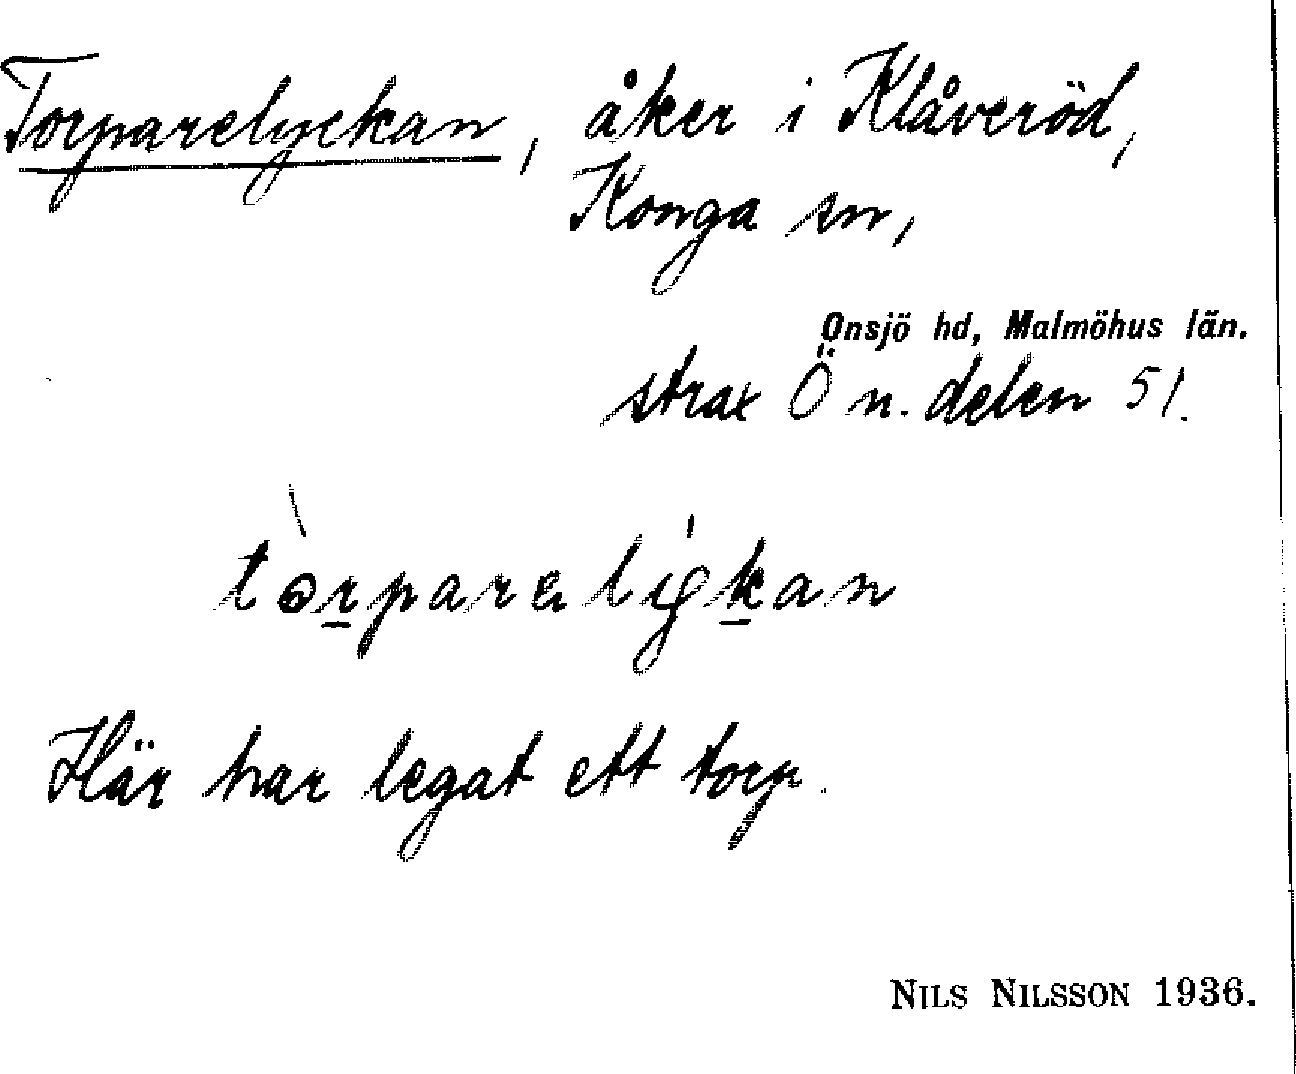 Torparelyckan, åker i Klåveröd,
Konga sn,
Onsjö hd, Malmöhus län.
strax Ö n. delen 51.
Här har legat ett torp.
NILS NILSSON 1936.